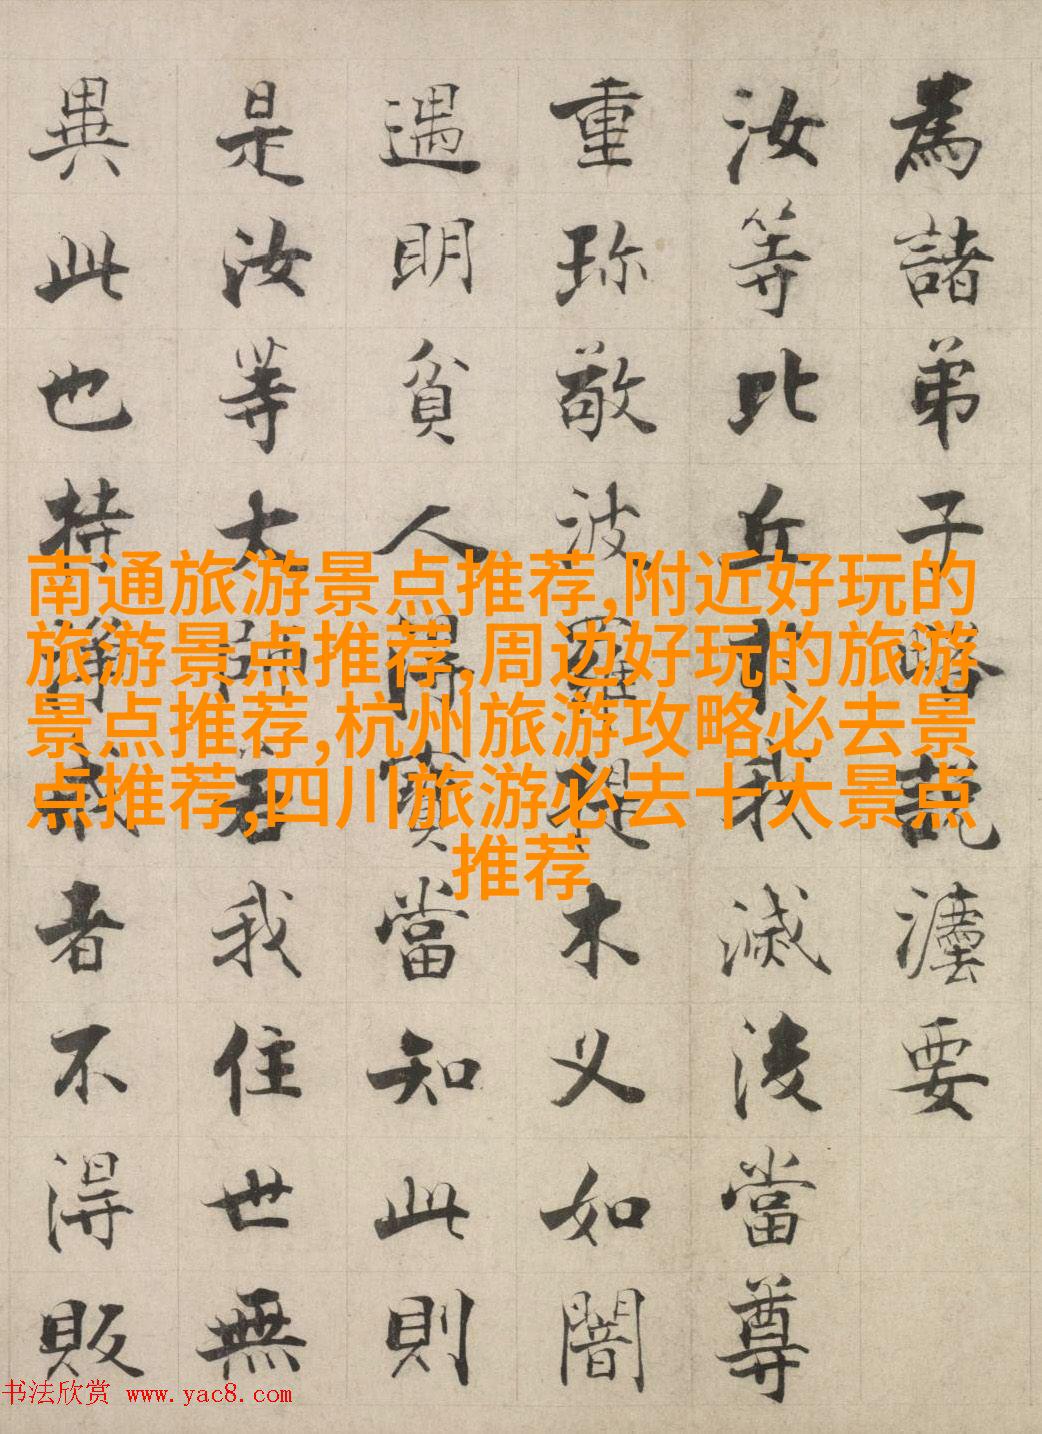 為諸弟子略說法要
汝等比丘於我滅後當尊
重珎敬波羅提木义如闇
遇明貧人得寶當知此則
是汝等大師若我住世無
異此也持淨戒者不得販
南通旅游景点推荐,附近好玩的
旅游景点推荐,周边好玩的旅游
景点推荐,杭州旅游攻略必去景
点推荐,四川旅游必去十大景点
推荐
书法欣赏 www.yac8.com